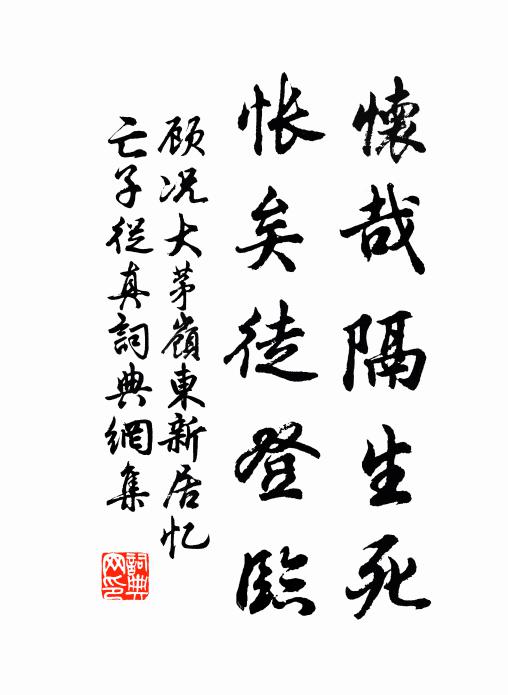 懷哉隔生死
悵矣徒登臨
顾况大茅嶺東新居忆
亡子從真詞典網集
詞典
网印